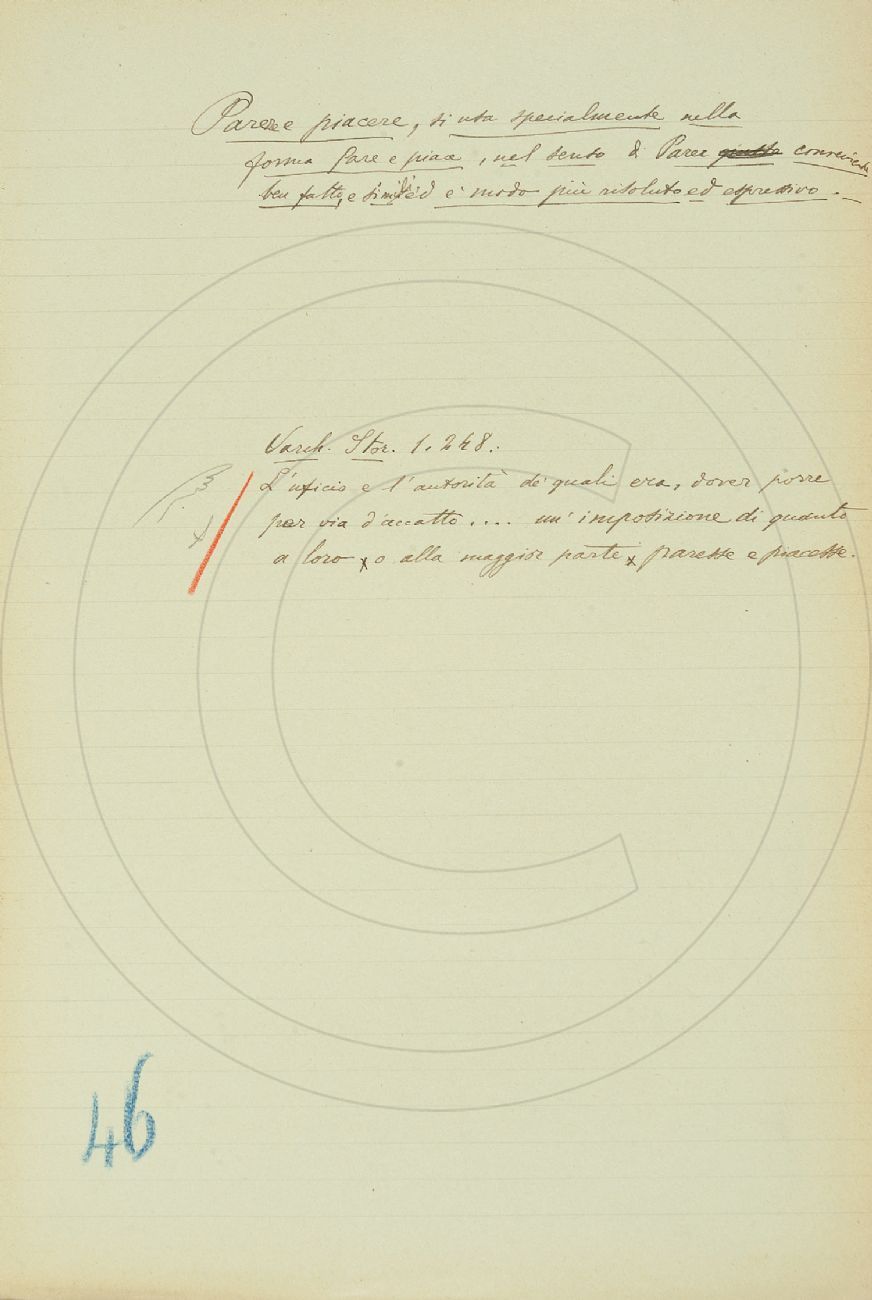 Parere e piacere, si usa specialmente nella
forma Pare e piace, nel senso di Parer giusto conveniente
ben fatto, e simili ed è modo più risoluto ed espressivo.
Varch. Stor. 1. 248.:
L'uficio e l'autorità de' quali era, dover porre
per via d'accatto.... un' imposizione di quanto
a loro, o alla maggior parte, paresse e piacesse.
46